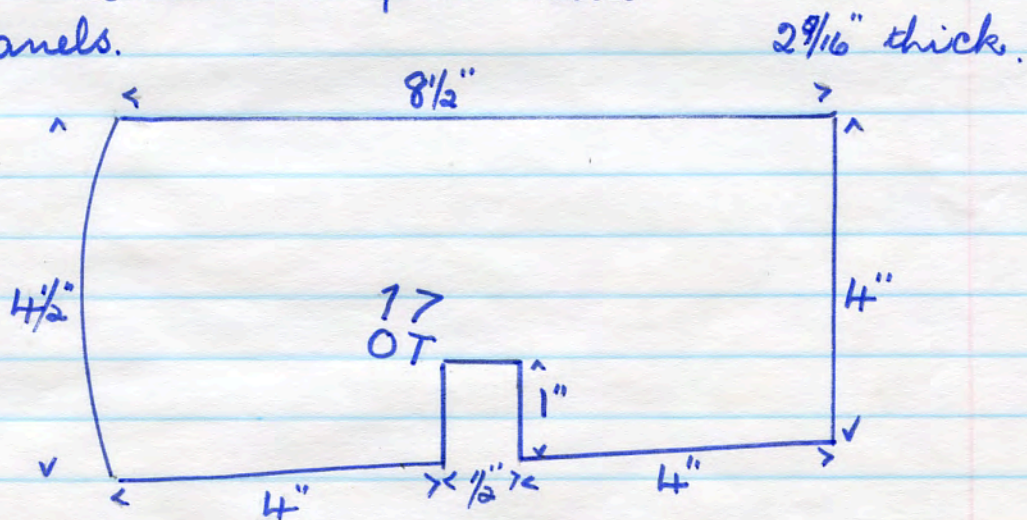 anels.
2 9/16" thick.
8 1/2"
4 1/2"
4"
17
OT
1"
4"
1/2"
4"